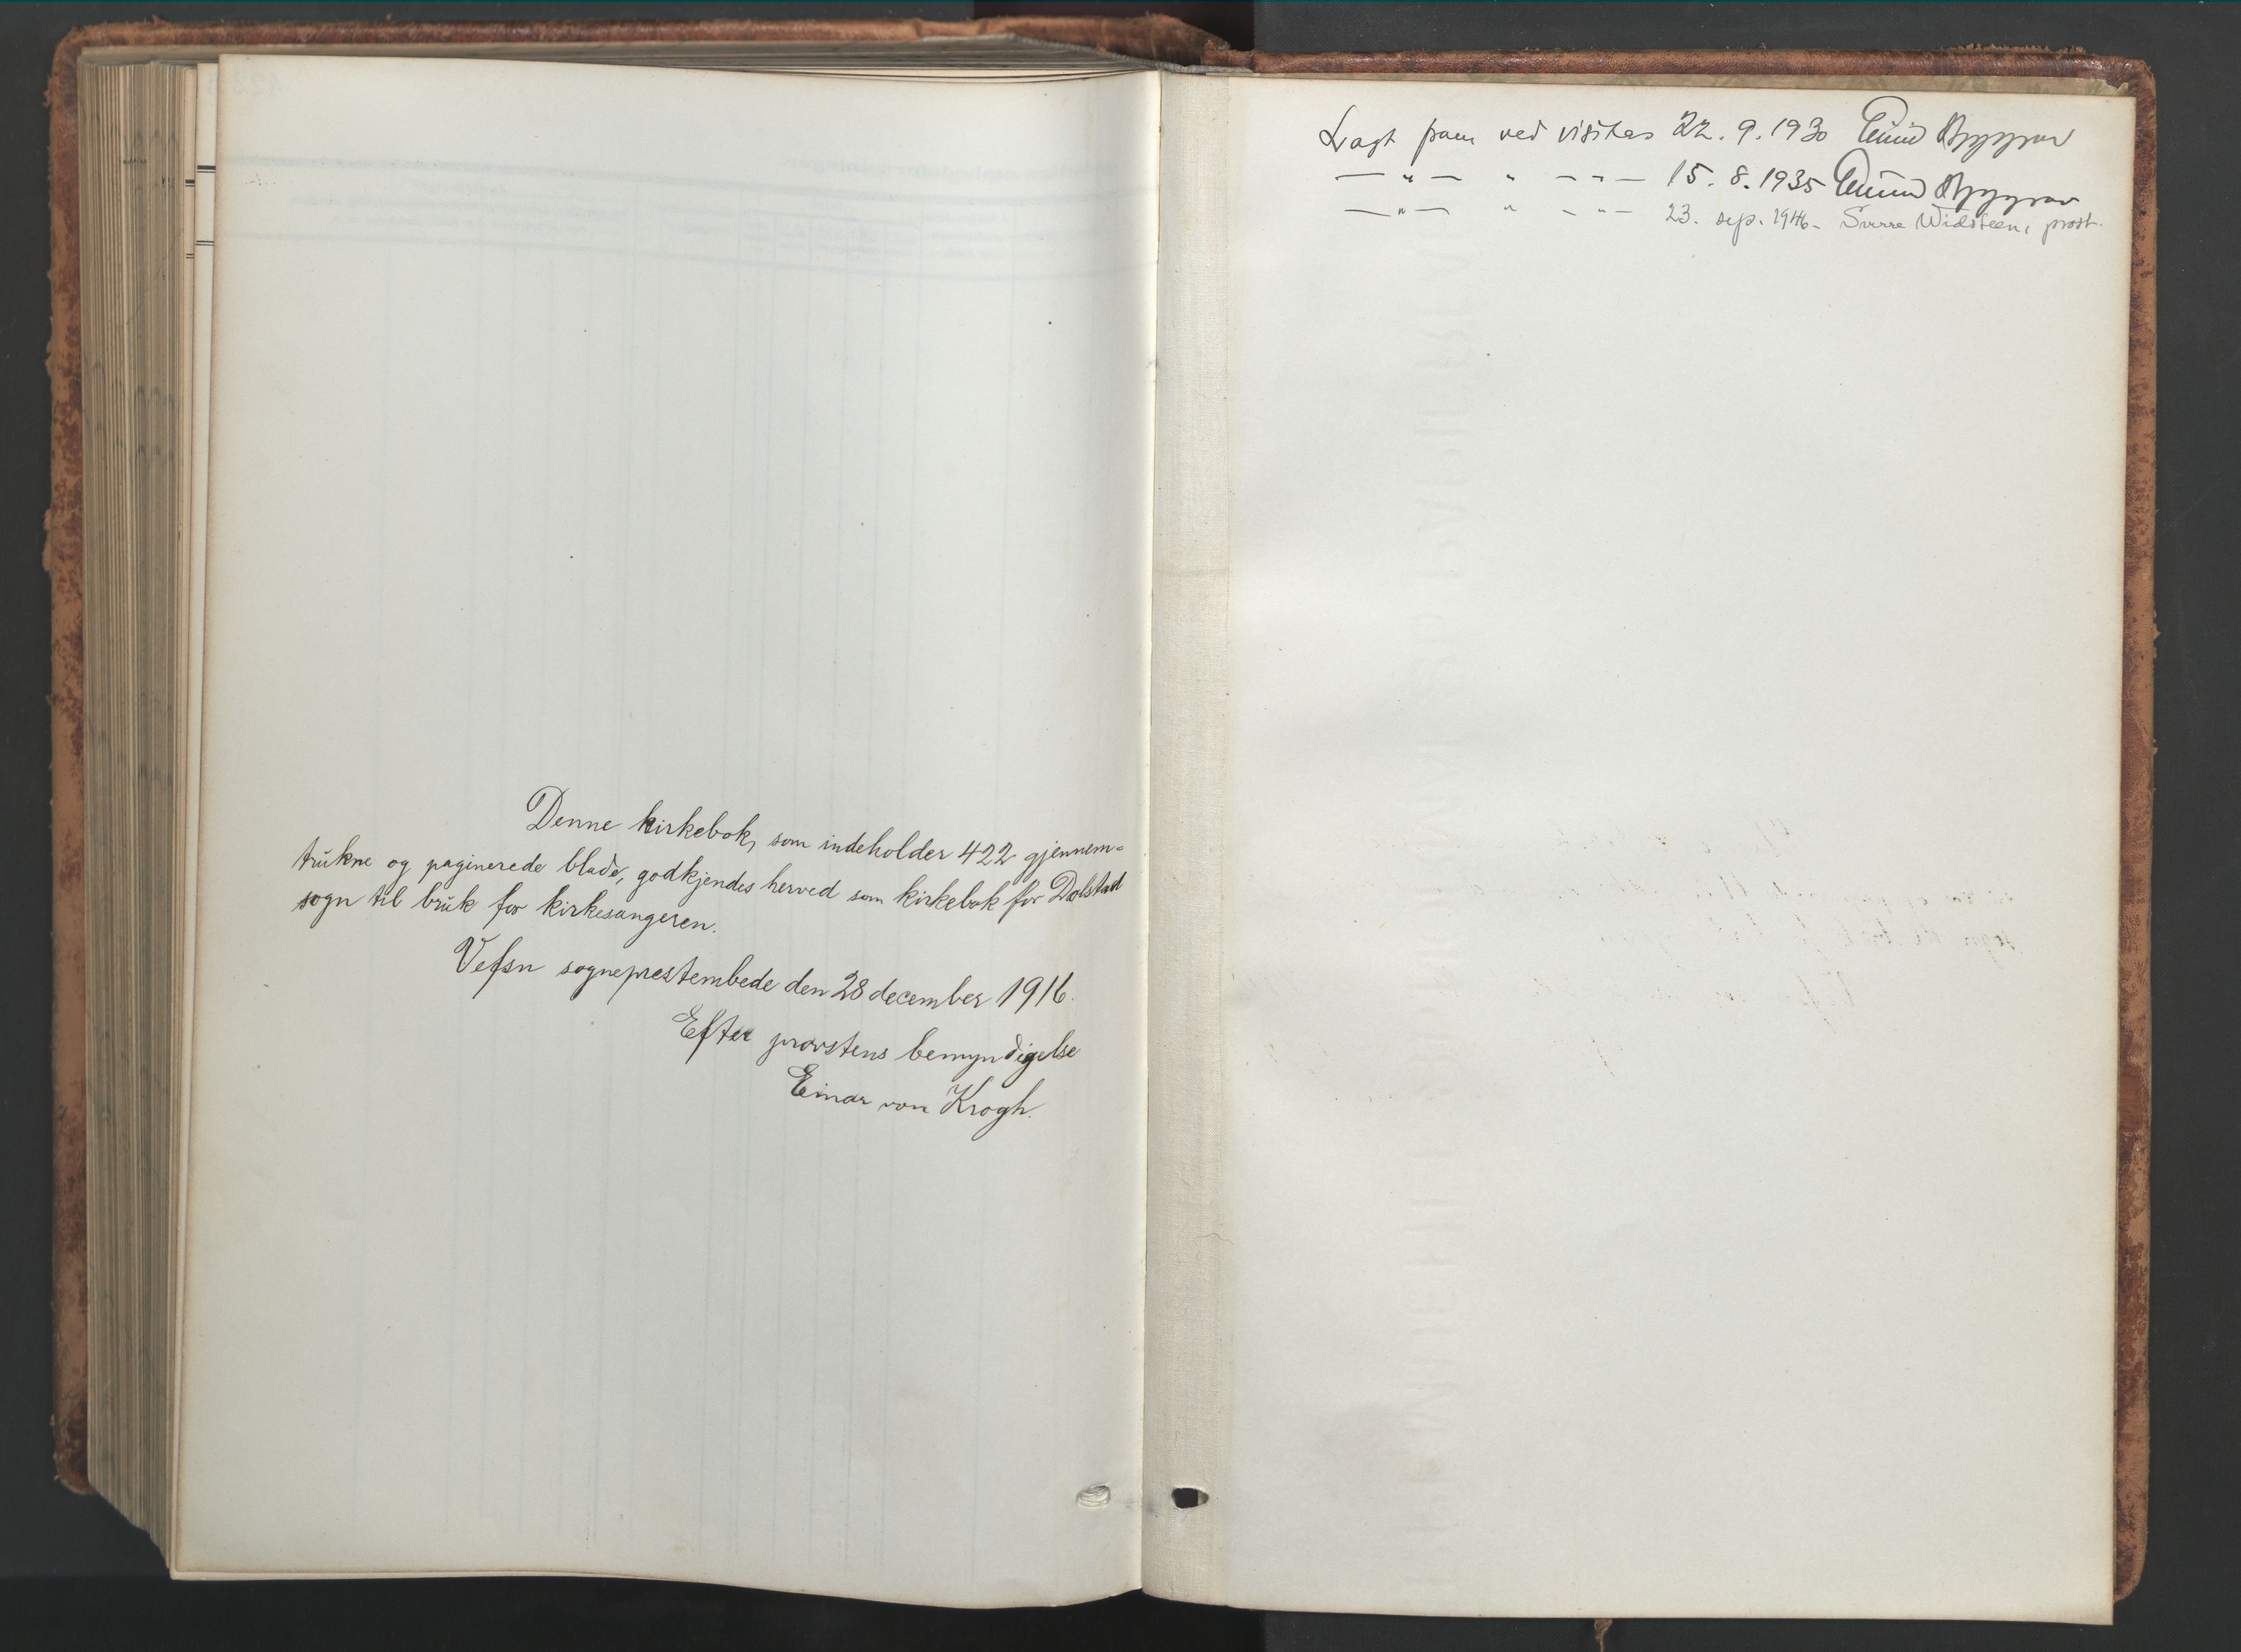 Denne kirkebok, som indeholder 422 gjennem-
trukne og paginerede blade, godkjendes herved som kirkebok for Dolstad
sogn til bruk for kirkesangeren.
Vefsn sogneprestembede den 28 december 1916.
Efter provstens bemyndigelse
Einar von Krogh.
Lagt fram ved visitas 22. 9. 1930
— " — " — " — 15. 8. 1935
— " — " — " — 23. sep. 1946. Sverre Widsteen, prost.